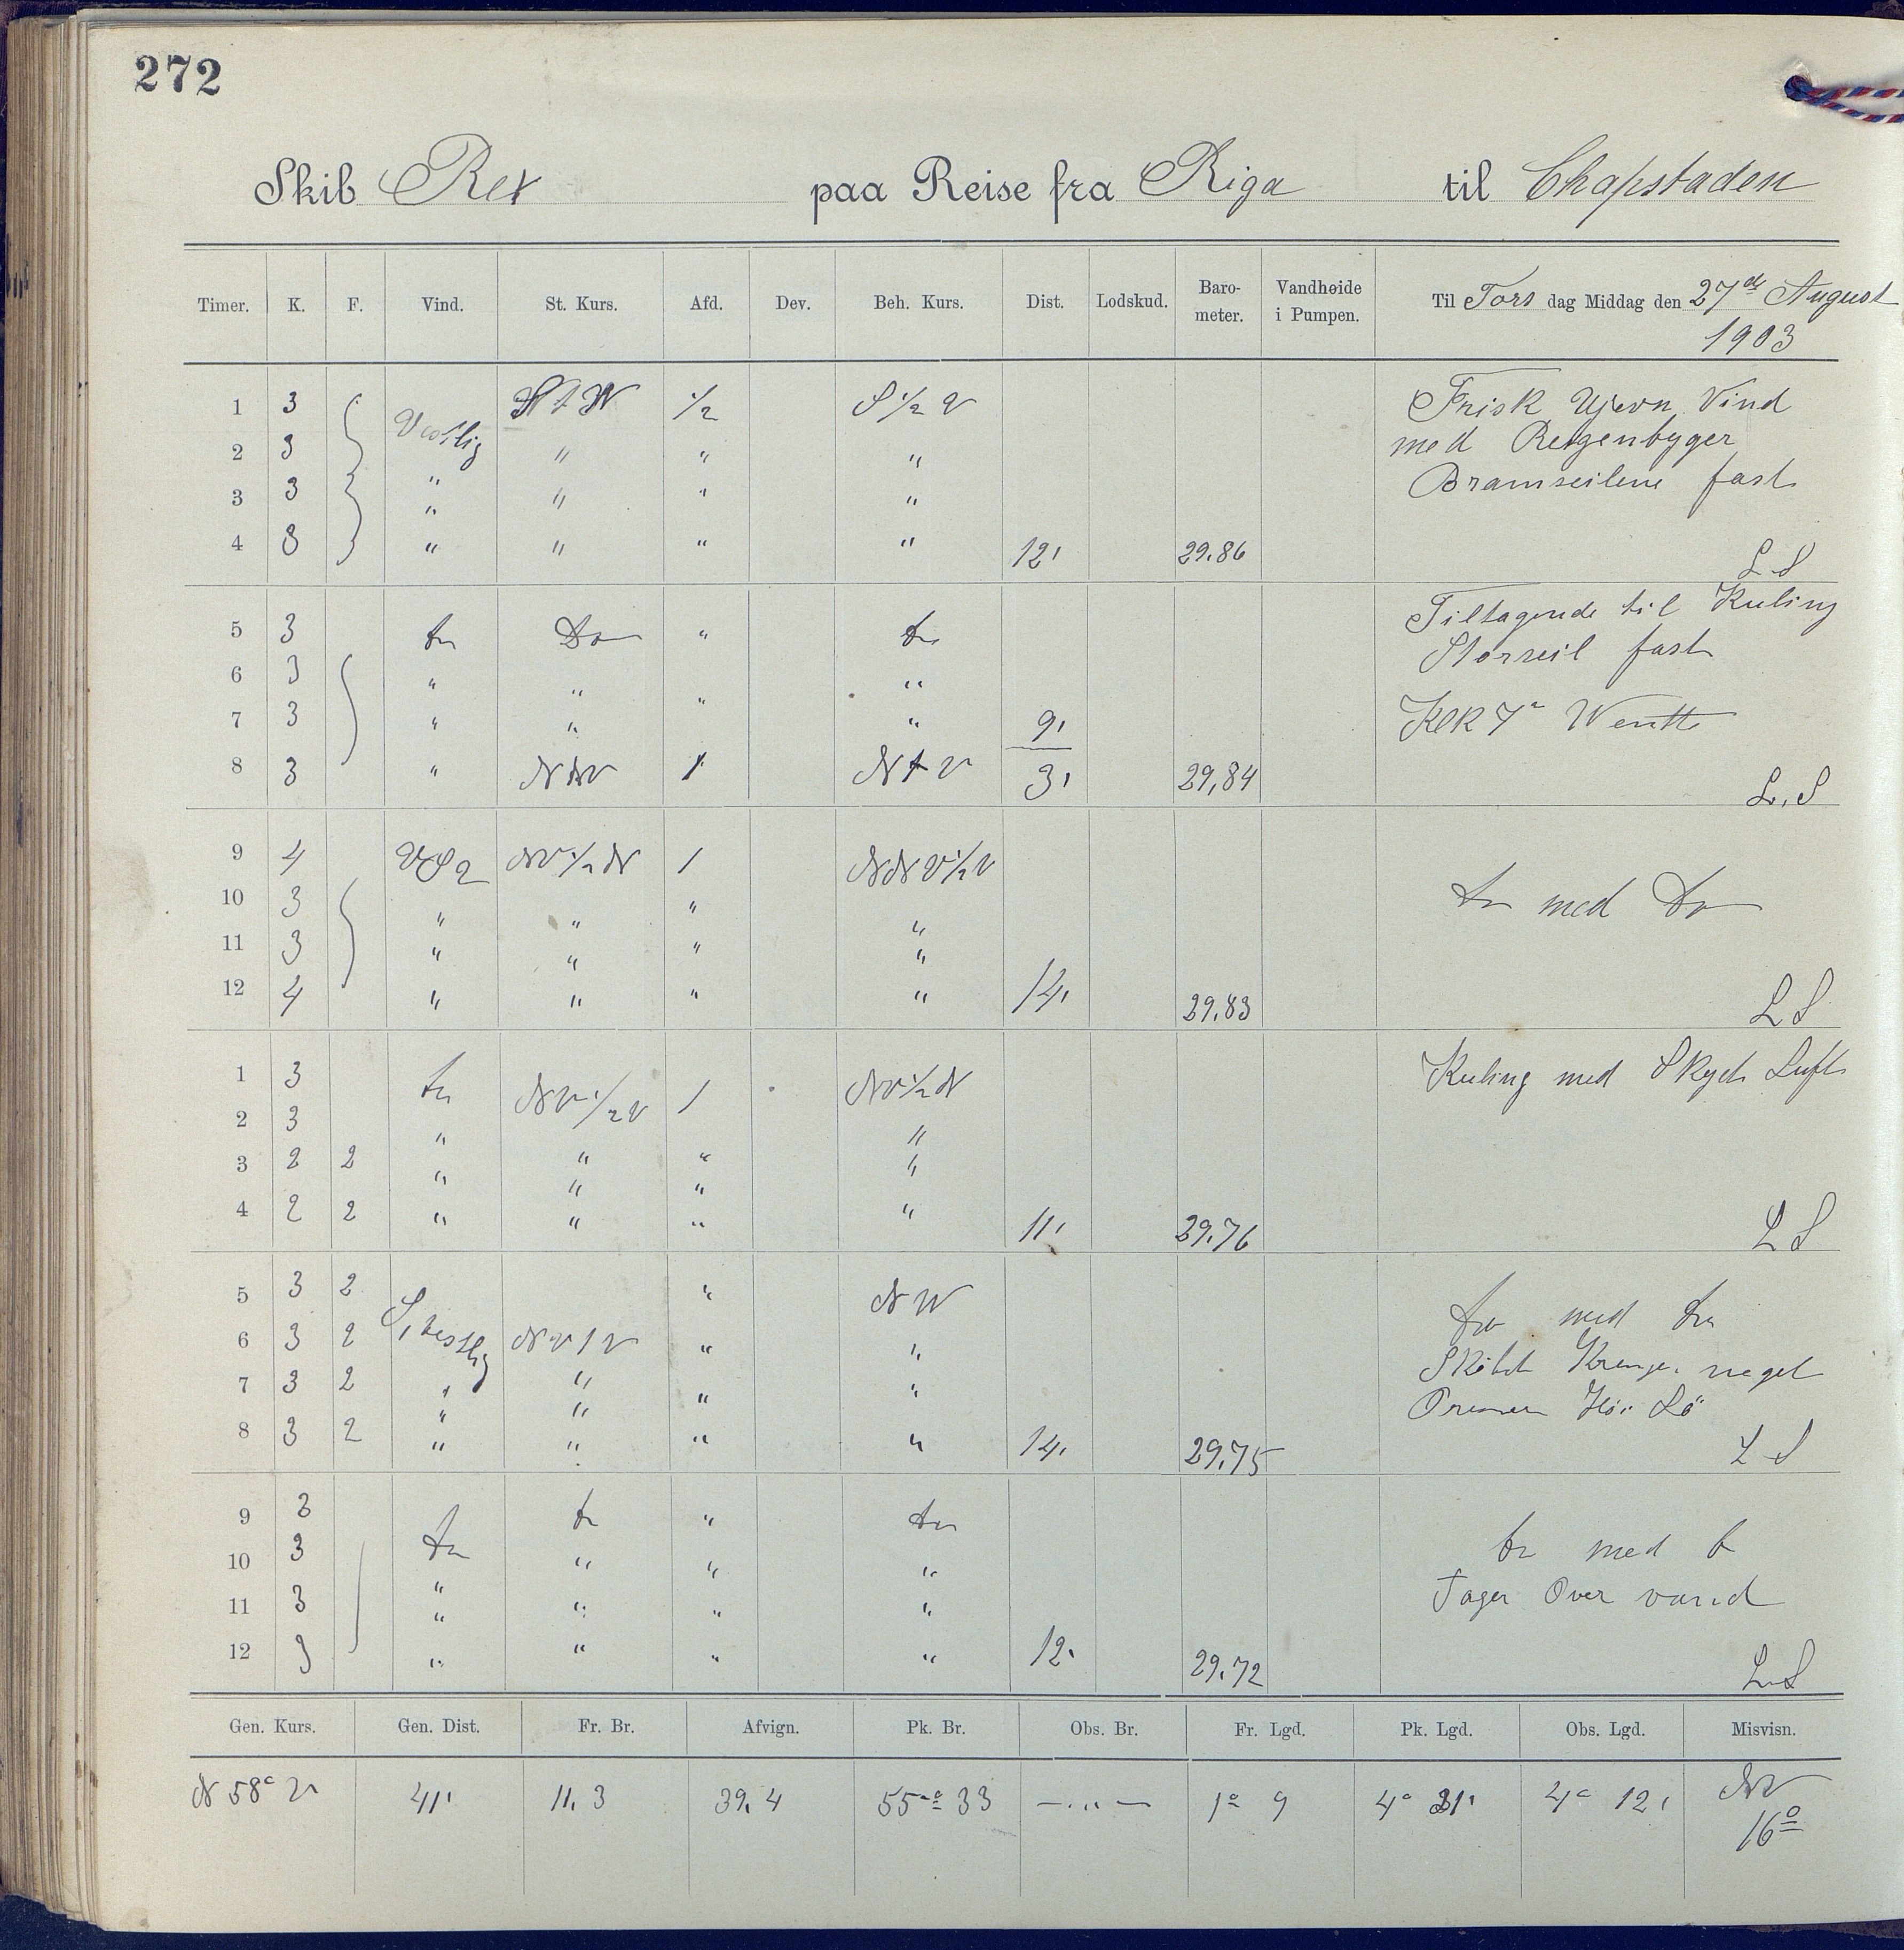 272
Skib Rex paa Reise fra Riga til Chapstaden
Timer. K. F. Vind. St. Kurs. Afd. Dev. Beh. Kurs. Dist. Lodskud. Baro-meter. Vandhøide i Pumpen. Til Tors dag Middag den 27de August 1903
1 3 Vestlig ½ S ½ V Frisk Ujevn Vind
2 3 " " " " med Regenbyger
3 3 " " " " Bramseilene fast
4 3 " " " " 12' 29.86 L S
5 3 do do " do Tiltagende til Kuling
6 3 " " " " Storseil fast
7 3 " " " 9' Klk 7 Wentte
8 3 " 1 N t V 3' 29,84 L. S
9 4 NV ½ N 1 NNV ½ V
10 3 " " " " do med do
11 3 " " " "
12 4 " " " " 14' 29.83 L S
1 3 do NV ½ V 1 NV ½ N Kuling med Skyet Luft
2 3 " "
3 2 2 " " " "
4 2 2 " " " " 11' 29.76 L S
5 3 2 " NW do med do
6 3 2 NV t V " "
7 3 2 " " " "
8 3 2 " " " " 14' 29.75 L S
9 3 do " do
10 3 do " " " do med do
11 3 " " " " Tager Over vand
12 3 " " " " 12' 29.72 L S
Gen. Kurs. Gen. Dist. Fr. Br. Afvign. Pk. Br. Obs. Br. Fr. Lgd. Pk. Lgd. Obs. Lgd. Misvisn.
N 58° V 41' 11.3 39.4 55° 33 — " — 1° 9 4° 21' 4° 12' NV
16°